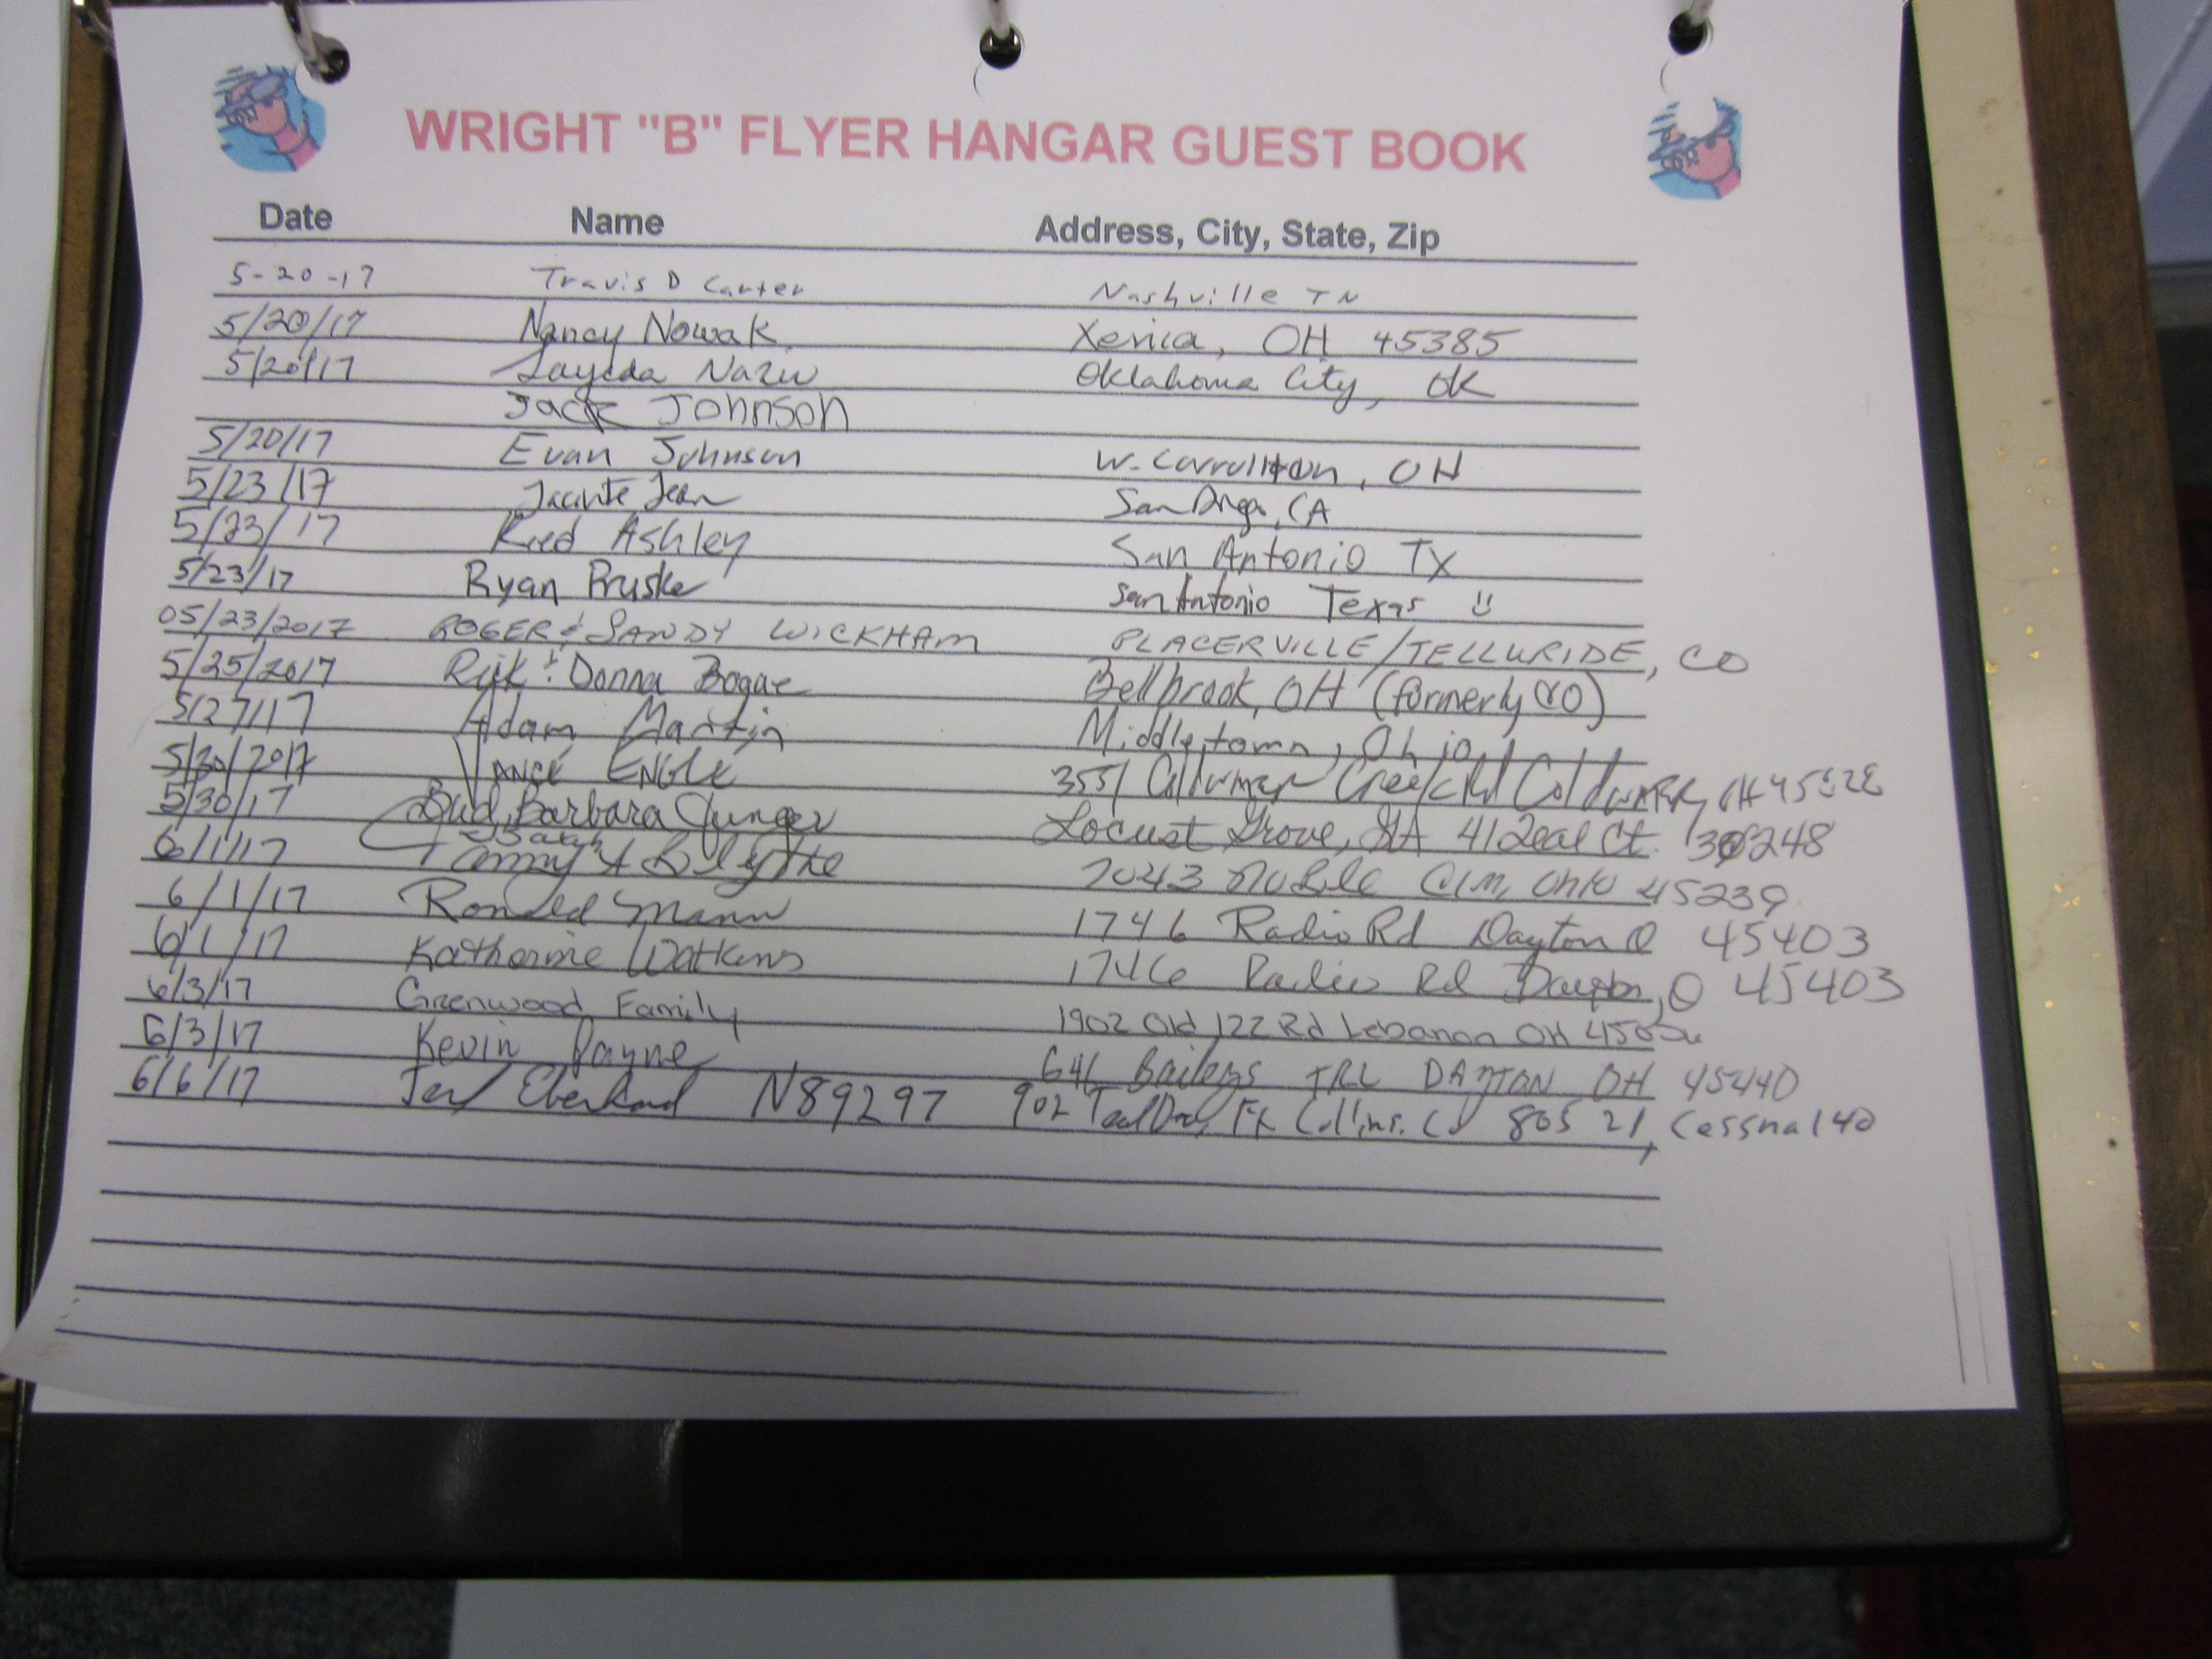 WRIGHT "B" FLYER HANGAR GUEST BOOK
Date Name Address, City, State, Zip
5-20-17 Travis D Carter Nashville TN
5/20/17 Nancy Nowak Xenia, OH 45385
5/20/17 Oklahoma City, OK
Jack Johnson
5/20/17 Evan Johnson W. Carrollton, OH
5/23/17 Jean San Diego, CA
5/23/17 Ashley San Antonio TX
5/23/17 Ryan Pruske San Antonio Texas
05/23/2017 ROGER & SANDY WICKHAM PLACERVILLE/TELLURIDE, CO
5/25/2017 Rick & Donna Bogue Bellbrook, OH (formerly CO)
5/27/17 Adam Martin Middletown, Ohio
5/30/2017 VANCE ENGLE 3551 Creek Rd
5/30/17 Bud, Barbara Junger Locust Grove, GA 41 Zeal Ct. 30248
6/1/17 Tammy & Sarah Blythe 7043 Mobile Cin, Ohio 45239
6/1/17 Ronald Mann 1746 Radio Rd Dayton O 45403
6/1/17 Katherine Watkins 1746 Radio Rd Dayton, O 45403
6/3/17 Greenwood Family 1902 Old 122 Rd Lebanon OH
6/3/17 Kevin Payne 641 Baileys TRL DAYTON OH 45440
6/6/17 N89297 902 Ft Collins. CO 80521, Cessna 140